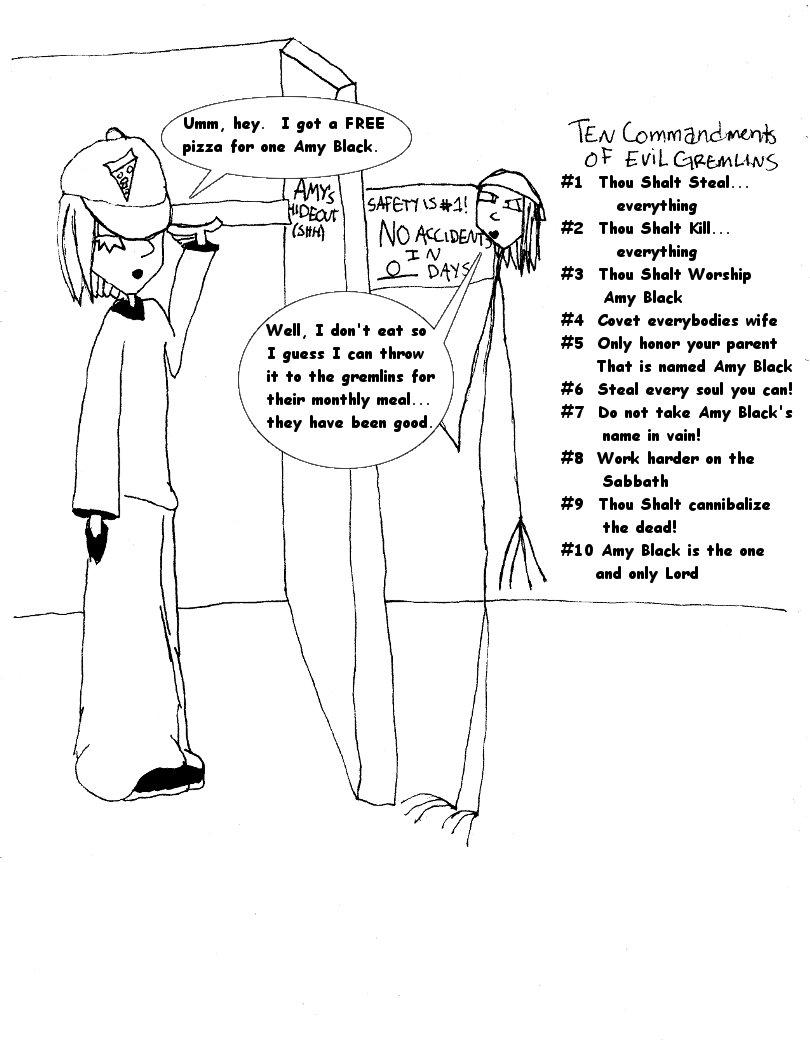 Umm, hey. I got a FREE
pizza for one Amy Black.
AMY'S
HIDEOUT
(SHH)
SAFETY IS #1!
NO ACCIDENTS
IN
0 DAYS
Well, I don't eat so
I guess I can throw
it to the gremlins for
their monthly meal...
they have been good.
TEN Commandments
OF EVIL GREMLINS
#1 Thou Shalt Steal...
everything
#2 Thou Shalt Kill...
everything
#3 Thou Shalt Worship
Amy Black
#4 Covet everybodies wife
#5 Only honor your parent
That is named Amy Black
#6 Steal every soul you can!
#7 Do not take Amy Black's
name in vain!
#8 Work harder on the
Sabbath
#9 Thou Shalt cannibalize
the dead!
#10 Amy Black is the one
and only Lord